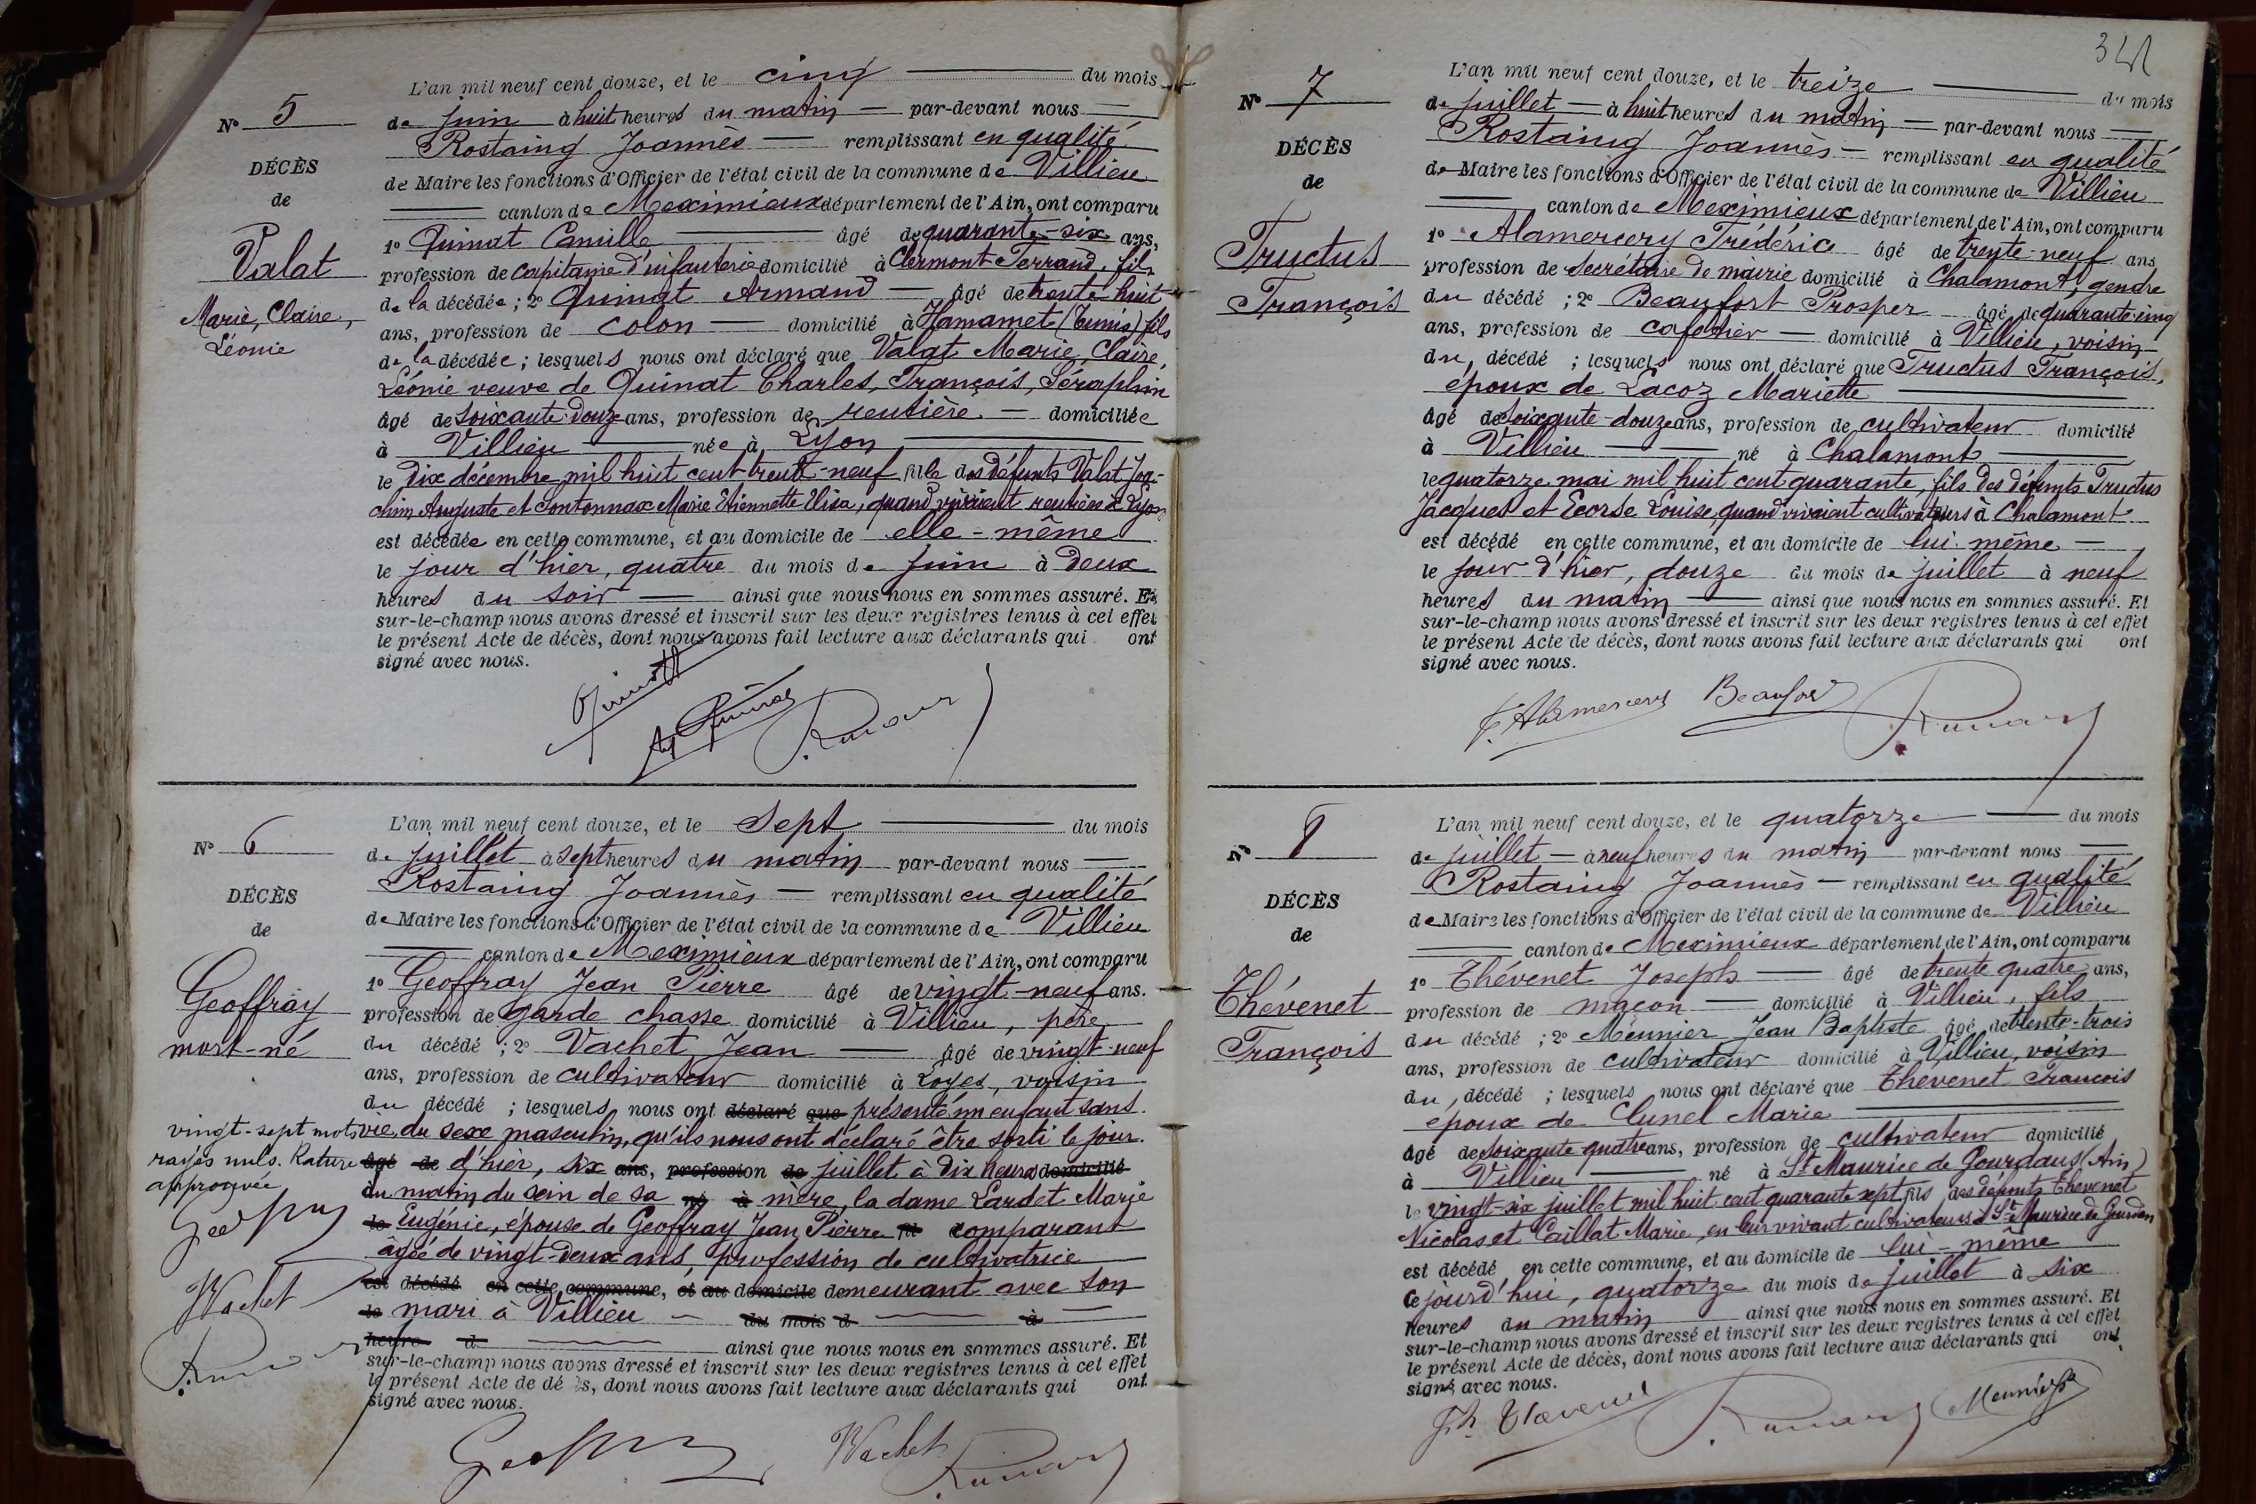 L'an mil neuf cent douze, et le cinq du mois
N° 5
de juin à huit heures du matin par-devant nous
Rostaing Joannès remplissant en qualité
DÉCÈS
de Maire les fonctions d'Officier de l'état civil de la commune de Villieu
de
canton de Meximieux département de l'Ain, ont comparu
1° Quinat Camille âgé de quarante-six ans,
Valat
profession de capitaine d'infanterie domicilié à Clermont-Ferrand, fils
de la décédée ; 2° Quinat Armand âgé de trente huit
Marie, Claire,
ans, profession de colon domicilié à Hamamet (Tunis) fils
Léonie
de la décédée ; lesquels nous ont déclaré que Valat Marie, Claire,
Léonie veuve de Quinat Charles, François, Séraphin
âgé de soixante-douze ans, profession de rentière domiciliée
à Villieu née à Lyon
le dix décembre mil huit cent trente-neuf fille des défunts Valat Joa-
chim Auguste et Contonnax Marie Etiennette Elisa, quand vivaient rentiers à Lyon
est décédée en cette commune, et au domicile de elle-même
le jour d'hier, quatre du mois de juin à deux
heures du soir ainsi que nous nous en sommes assuré. Et
sur-le-champ nous avons dressé et inscrit sur les deux registres tenus à cet effet
le présent Acte de décès, dont nous avons fait lecture aux déclarants qui ont
signé avec nous.
L'an mil neuf cent douze, et le sept du mois
N° 6
de juillet à sept heures du matin par-devant nous
Rostaing Joannès remplissant en qualité
DÉCÈS
de Maire les fonctions d'Officier de l'état civil de la commune de Villieu
de
canton de Meximieux département de l'Ain, ont comparu
1° Geoffray Jean Pierre âgé de vingt-neuf ans.
Geoffray
profession de garde chasse domicilié à Villieu, père
mort-né
du décédé ; 2° Vachet Jean âgé de vingt-neuf
ans, profession de cultivateur domicilié à Loyes, voisin
du décédé ; lesquels nous ont déclaré que présenté un enfant sans
vingt-sept mots
vie, du sexe masculin, qu'ils nous ont déclaré être sorti le jour
rayés nuls. Rature
âgé de d'hier, six ans, profession de juillet à dix heures domicilié
approuvée
du matin du sein de sa né à mère, la dame Lardet Marie
le Eugénie, épouse de Geoffray Jean Pierre fil comparant
âgée de vingt-deux ans, profession de cultivatrice
est décédé en cette commune, et au domicile demeurant avec son
Vachet
le mari à Villieu du mois d à
heure d ainsi que nous nous en sommes assuré. Et
sur-le-champ nous avons dressé et inscrit sur les deux registres tenus à cet effet
le présent Acte de décès, dont nous avons fait lecture aux déclarants qui ont
signé avec nous.
Vachet
L'an mil neuf cent douze, et le treize du mois
N° 7
de juillet à huit heures du matin par-devant nous
Rostaing Joannès remplissant en qualité
DÉCÈS
de Maire les fonctions d'Officier de l'état civil de la commune de Villieu
de
canton de Meximieux département de l'Ain, ont comparu
1° Alamercery Frédéric âgé de trente-neuf ans
Tructus
profession de secrétaire de mairie domicilié à Chalamont, gendre
François
du décédé ; 2° Beaufort Prosper âgé de quarante-cinq
ans, profession de cafetier domicilié à Villieu, voisin
du décédé ; lesquels nous ont déclaré que Tructus François,
époux de Lacoz Mariette
âgé de soixante-douze ans, profession de cultivateur domicilié
à Villieu né à Chalamont
le quatorze mai mil huit cent quarante, fils des défunts Tructus
Jacques et Ecorse Louise, quand vivaient cultivateurs à Chalamont
est décédé en cette commune, et au domicile de lui-même
le jour d'hier, douze du mois de juillet à neuf
heures du matin ainsi que nous nous en sommes assuré. Et
sur-le-champ nous avons dressé et inscrit sur les deux registres tenus à cet effet
le présent Acte de décès, dont nous avons fait lecture aux déclarants qui ont
signé avec nous.
F. Alamercery Beaufort
L'an mil neuf cent douze, et le quatorze du mois
N° 8
de juillet à neuf heures du matin par-devant nous
Rostaing Joannès remplissant en qualité
DÉCÈS
de Maire les fonctions d'Officier de l'état civil de la commune de Villieu
de
canton de Meximieux département de l'Ain, ont comparu
1° Thévenet Joseph âgé de trente quatre ans,
Thévenet
profession de maçon domicilié à Villieu, fils
François
du décédé ; 2° Meunier Jean Baptiste âgé de trente-trois
ans, profession de cultivateur domicilié à Villieu, voisin
du décédé ; lesquels nous ont déclaré que Thévenet François
époux de Clunel Marie
âgé de soixante quatre ans, profession de cultivateur domicilié
à Villieu né à St Maurice de Gourdans (Ain)
le vingt-six juillet mil huit cent quarante sept fils des défunts Thévenet
Nicolas et Caillat Marie, en leur vivant cultivateurs à St Maurice de Gourdan
est décédé en cette commune, et au domicile de lui-même
ce jourd'hui, quatorze du mois de juillet à six
heures du matin ainsi que nous nous en sommes assuré. Et
sur-le-champ nous avons dressé et inscrit sur les deux registres tenus à cet effet
le présent Acte de décès, dont nous avons fait lecture aux déclarants qui ont
signé avec nous.